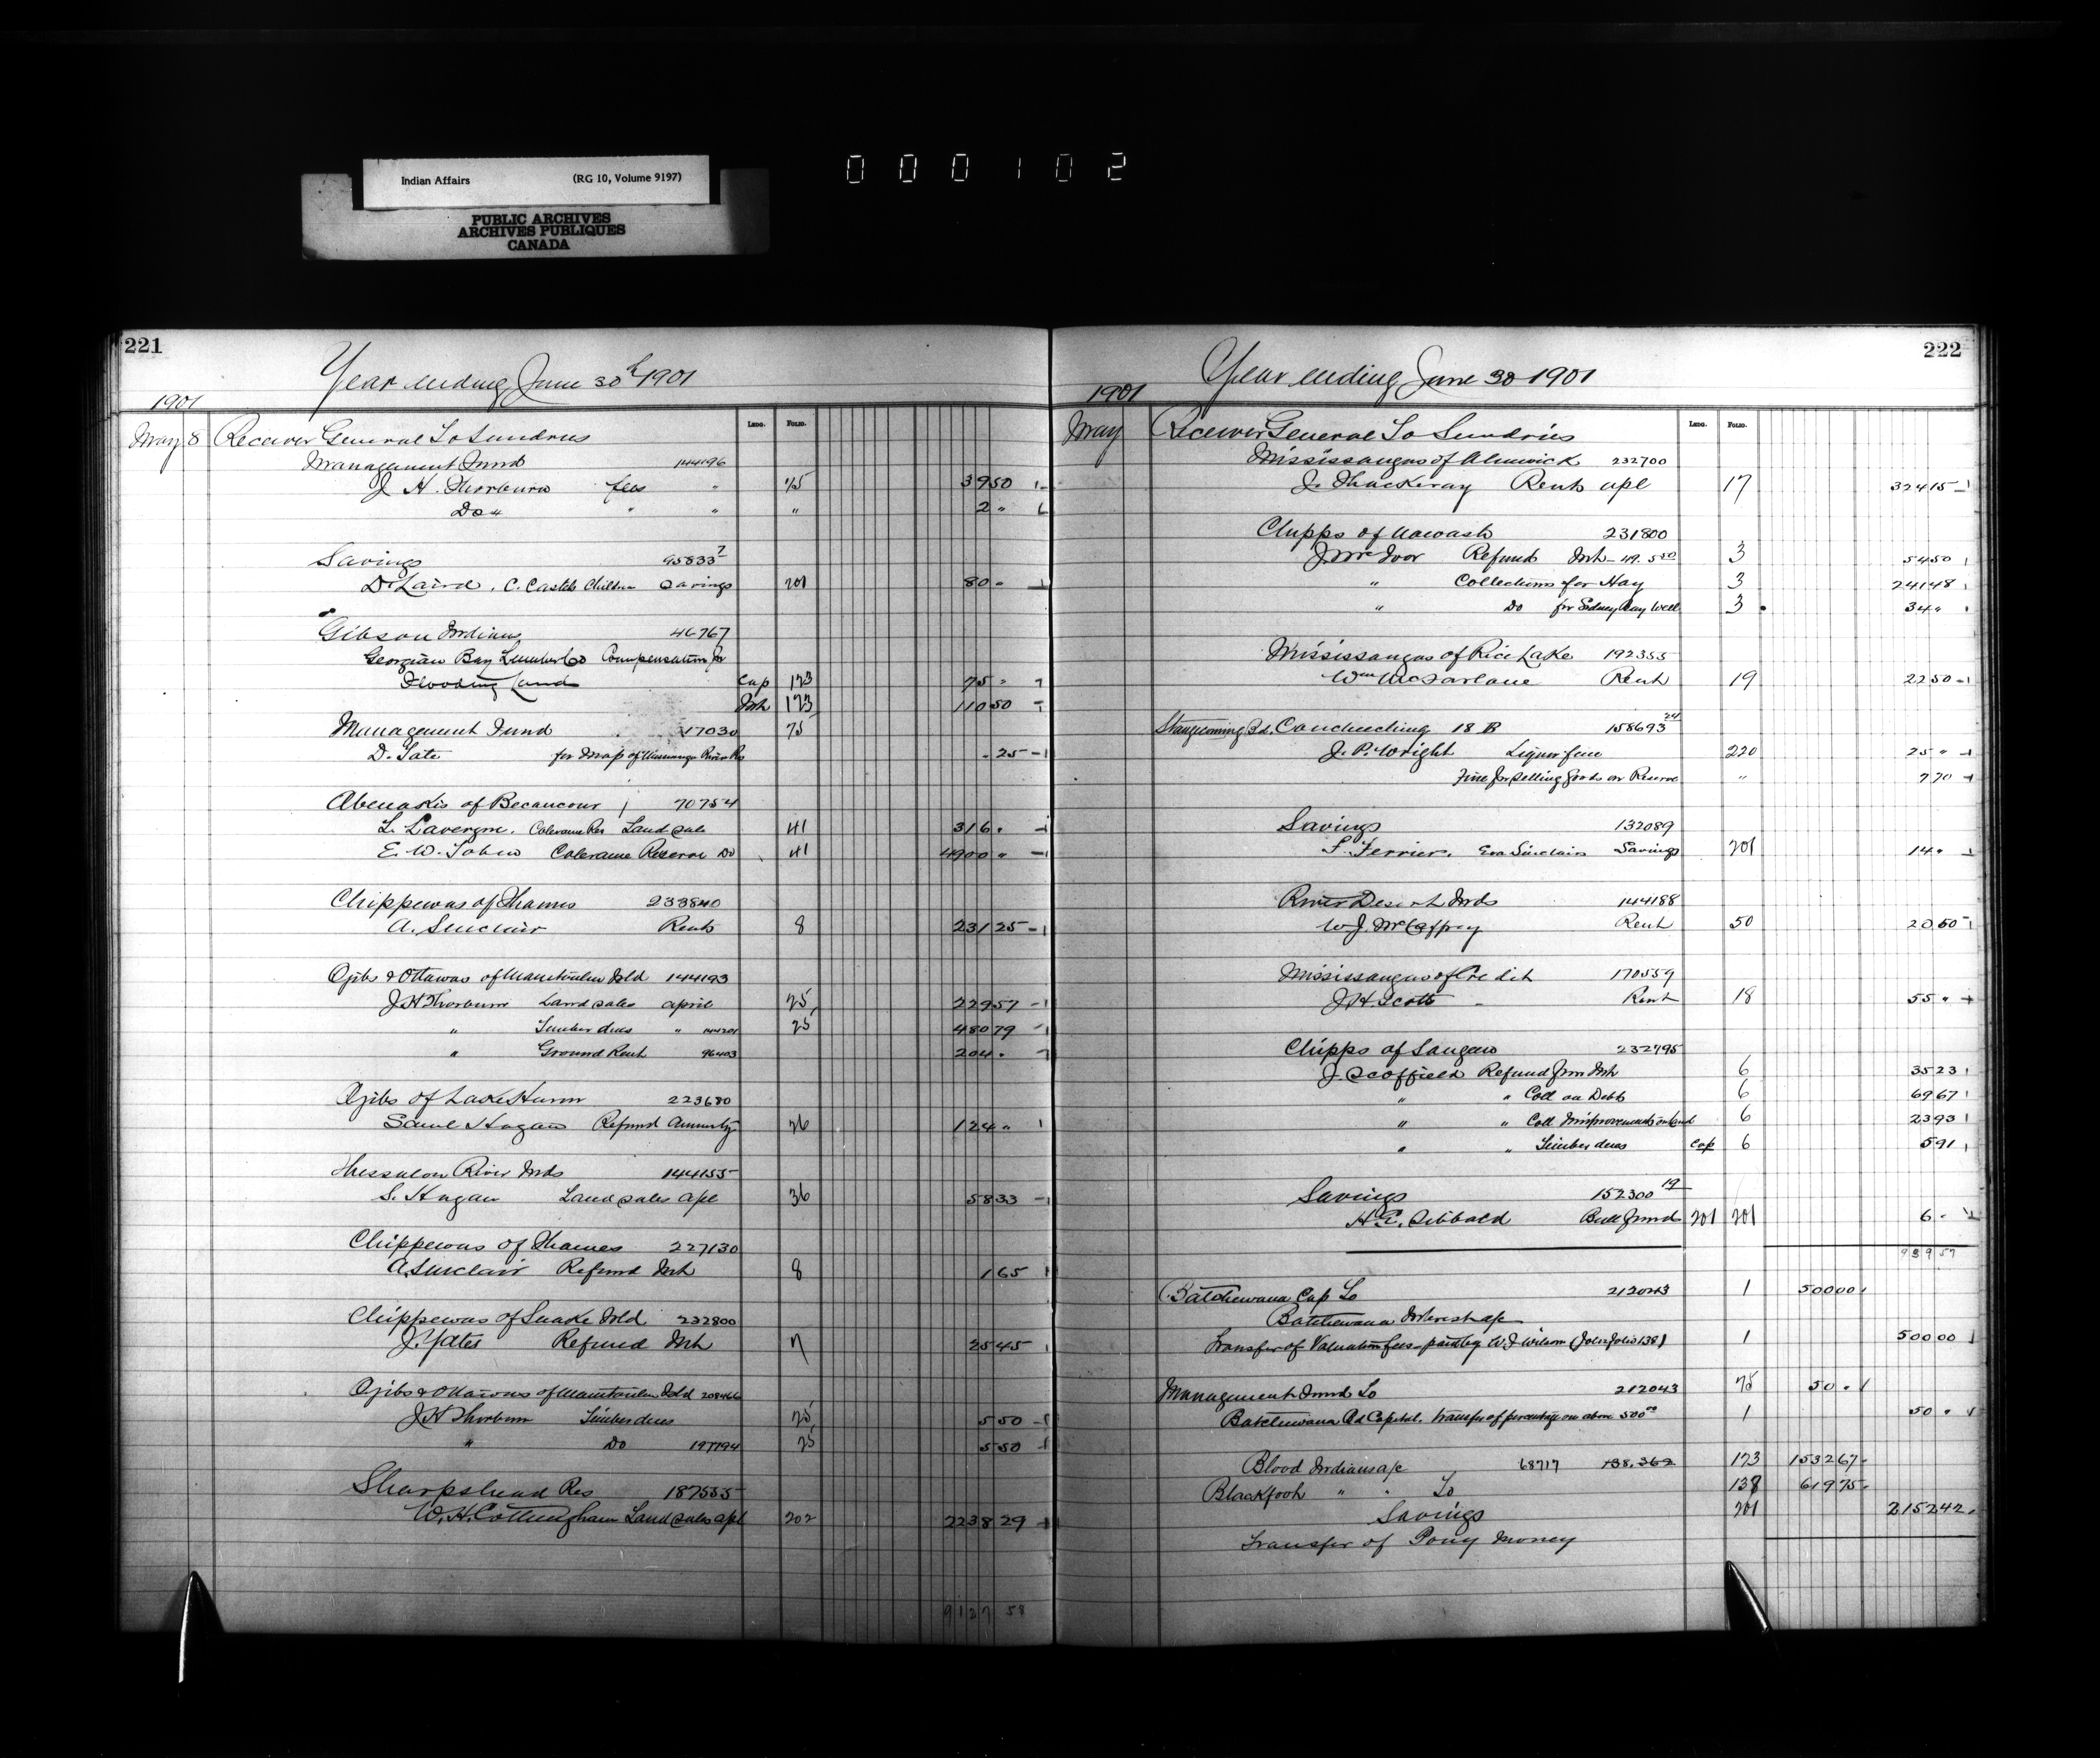 Indian Affairs (RG 10, Volume 9197)
PUBLIC ARCHIVES
ARCHIVES PUBLIQUES
CANADA
000102
221
Year ending June 30th 1901
1901
LEDG. FOLIO.
May 8 Receiver General To Sundries
Management Fund 144196
J H Thorburn fees " 75 39 50
Do " " " " 2 "
Savings 95833 7
D. Laird, C. Castel Children Savings 201 80 "
Gibson Indians 46767
Georgian Bay Lumber Co Compensation for
Flooding Land Cap 123 75 "
Int 123 110 50
Management Fund 17030 75
D. Tate for Map of River Res 25
Abenakis of Becancour 70754
L. Lavergne. Coleraine Res Land sale 41 316 "
E. W. Tobin Coleraine Reserve Do 41 4900 "
Chippewas of Thames 233840
A. Sinclair Rents 8 231 25
Ojibs & Ottawas of Manitoulin Isld 144193
J H Thorburn Land sales april 25 229 57
" Timber dues " 144201 25 480 79
" Ground Rent 96403 204 "
Ojibs of Lake Huron 223680
Saml Hagan Refund Annuity 26 124 "
Thessalon River Inds 144155
S. Hagan Land sales apl 36 58 33
Chippewas of Thames 227130
A. Sinclair Refund Int 8 1 65
Chippewas of Snake Isld 232800
J. Yates Refund Int 7 25 45
Ojibs & Ottawas of Manitoulin Isld 208466
J H Thorburn Timber dues 25 5 50
" Do 197194 25 5 50
Sharpshead Res 187555
W. H. Cottingham Land sales apl 202 2238 29
9127 58
222
Year ending June 30 1901
1901
LEDG. FOLIO.
May Receiver General To Sundries
Mississaugas of Alnwick 232700
J. Thackeray Rents apl 17 324 15
Chipps of Nawash 231800
J. McIvor Refund Int 49. 5 50 3 54 50
" Collections for Hay 3 241 48
" Do for Sidney Bay Well 3 34 "
Mississaugas of Rice Lake 192355
Wm McFarlane Rent 19 22 50
Stangecoming Bd. Couchiching 18 B 158693 24
J. P. Wright Liquor fine 220 25 "
Fine for selling goods on Reserve " 7 70
Savings 132089
F. Ferrier, Eva Sinclair Savings 201 14 "
River Desert Inds 144188
W. J. McCaffrey Rent 50 20 50
Mississaugas of Credit 170559
J. H. Scott Rent 18 55 "
Chipps of Saugeen 232795
J. Scoffield Refund from Int 6 35 23
" " Coll on Debts 6 69 67
" " Coll Improvements on land 6 23 93
" " Timber dues Cap 6 5 91
Savings 152300 19
H. E. Sibbald Bull fund 201 201 6 "
939 57
Batchewana Cap To 212043 1 500 00
Batchewana Interest a/c
Transfer of Valuation fees paid by W J Wilson (Jol folio 138) 1 500 00
Management Fund To 212043 75 50 "
Batchewana Bd Capital. Transfer of percentage on above 500 00 1 50 "
Blood Indians a/c 68717 138,362 123 1532 67
Blackfoot " " To 138 619 75
Savings 201 2152 42
Transfer of Pony Money